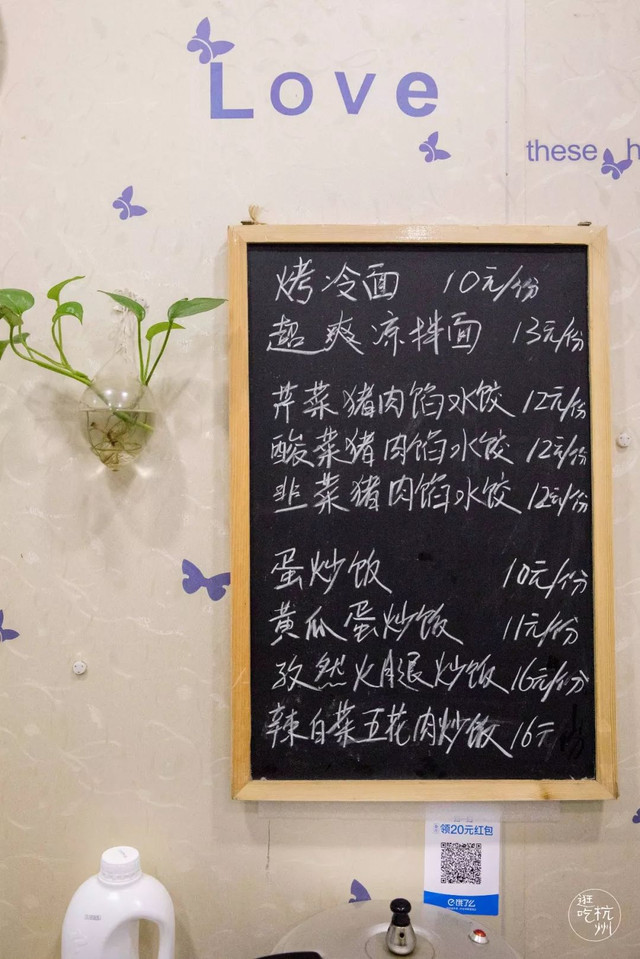 Love
these h
烤冷面 10元/份
超爽凉拌面 13元/份
芹菜猪肉馅水饺 12元/份
酸菜猪肉馅水饺 12元/份
韭菜猪肉馅水饺 12元/份
蛋炒饭 10元/份
黄瓜蛋炒饭 11元/份
孜然火腿炒饭 16元/份
辣白菜五花肉炒饭 16元
领20元红包
饿了么
逛吃杭州